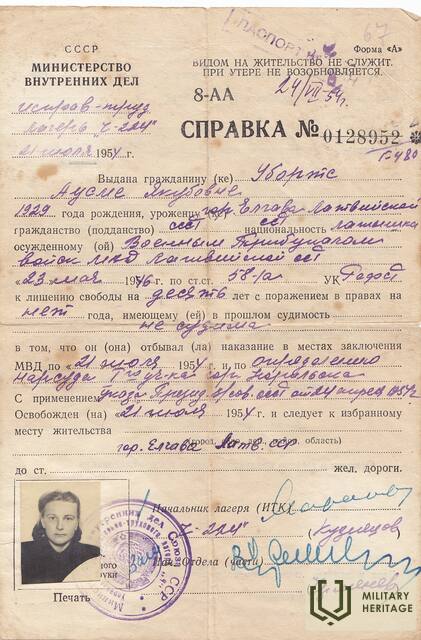 СССР
МИНИСТЕРСТВО
ВНУТРЕННИХ ДЕЛ
Исправ-труд
лагерь "Ч-224"
21 июля 1954 г.
ПАСПОРТ
67
Форма „А“
ВИДОМ НА ЖИТЕЛЬСТВО НЕ СЛУЖИТ.
ПРИ УТЕРЕ НЕ ВОЗОБНОВЛЯЕТСЯ.
8-АА
24/VII-54г.
СПРАВКА № 0128952
Выдана гражданину (ке) Убартс
Аусме Якубовне
1929 года рождения, уроженцу гор. Елгава Латвийской
гражданство (подданство) ССР национальность латышка
осужденному (ой) Военным Трибуналом
войск МВД Латвийской ССР
„23 мая 1946 г. по ст.ст. 58-1а УК РСФСР
к лишению свободы на десять лет с поражением в правах на
нет года, имеющей (ей) в прошлом судимость
не судима
в том, что он (она) отбывал (ла) наказание в местах заключения
МВД по „21 июля 1954 г. и по определению
Нарсуда гор. Норильска
С применением Указа Презид.
Освобожден (на) „21 июля 1954 г. и следует к избранному
месту жительства
гор. Елгава Латв. ССР
область)
до ст. жел. дороги.
Начальник лагеря (ИТК)
Ч-224" Кузнецов
Нач. Отдела (части)
Печать
MILITARY
HERITAGE